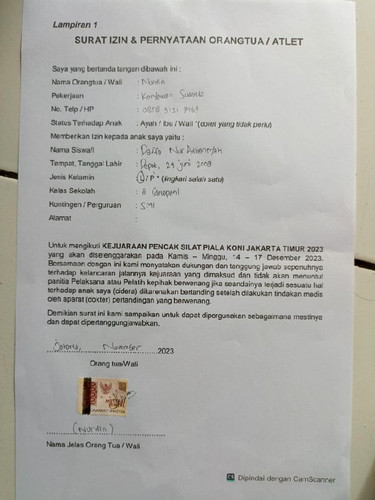 Lampiran 1
SURAT IZIN & PERNYATAAN ORANGTUA / ATLET
Saya yang bertanda tangan dibawah ini :
Nama Orangtua / Wali :
Pekerjaan : Karyawan Swasta
No. Telp / HP : 0858
Status Terhadap Anak : Ayah / Ibu / Wali *(coret yang tidak perlu)
Memberikan Izin kepada anak saya yaitu :
Nama Siswa/i : Nur
Tempat, Tanggal Lahir : Depok, 29 Juni
Jenis Kelamin : L / P * (lingkari salah satu)
Kelas Sekolah :
Kontingen / Perguruan : SMI
Alamat :
Untuk mengikuti KEJUARAAN PENCAK SILAT PIALA KONI JAKARTA TIMUR 2023
yang akan diselenggarakan pada Kamis – Minggu, 14 – 17 Desember 2023.
Bersamaan dengan ini kami menyatakan dukungan dan tanggung jawab sepenuhnya
terhadap kelancaran jalannya kejuaraan yang dimaksud dan tidak akan menuntut
panitia Pelaksana atau Pelatih kepihak berwenang jika seandainya terjadi sesuatu hal
terhadap anak saya (cidera) dikarenakan bertanding setelah dilakukan tindakan medis
oleh aparat (dokter) pertandingan yang berwenang.
Demikian surat ini kami sampaikan untuk dapat dipergunakan sebagaimana mestinya
dan dapat dipertanggungjawabkan.
Jakarta, November 2023
Orang tua/Wali
Nama Jelas Orang Tua / Wali
Dipindai dengan CamScanner